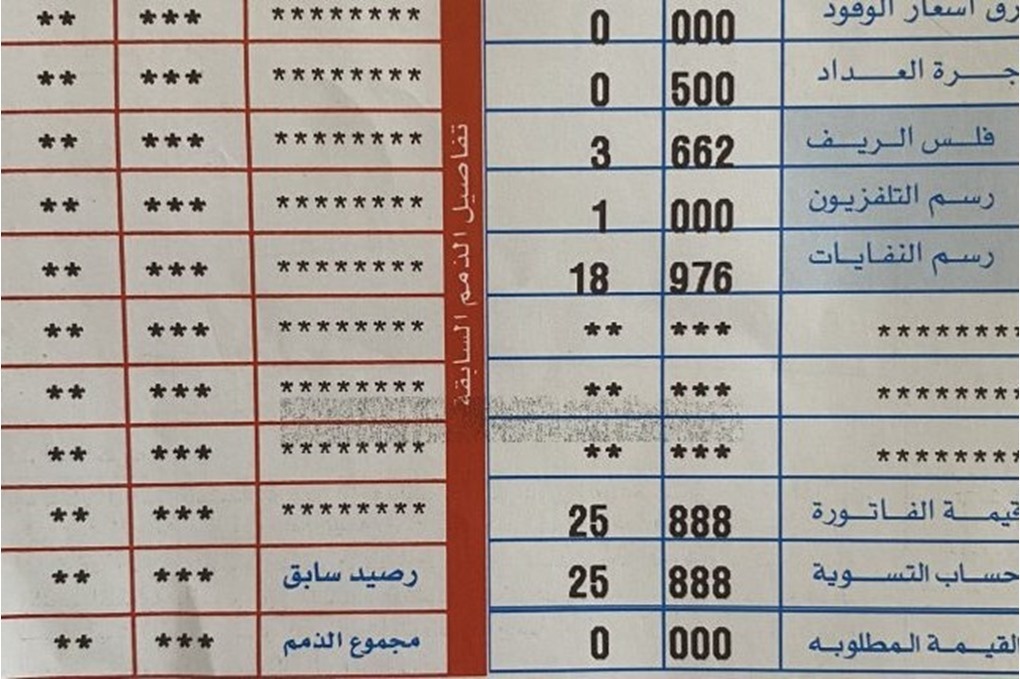 رق أسعار الوقود 0 000
جرة العداد 0 500
فلس الريف 3 662
رسم التلفزيون 1 000
رسم النفايات 18 976
******** *** **
******** *** **
******** *** **
قيمة الفاتورة 25 888
حساب التسوية 25 888
القيمة المطلوبه 0 000
تفاصيل الذمم السابقة
******** *** **
******** *** **
******** *** **
******** *** **
******** *** **
******** *** **
******** *** **
******** *** **
******** *** **
رصيد سابق *** **
مجموع الذمم *** **